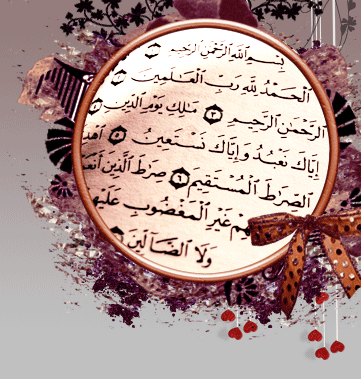 بِسْمِ ٱللَّهِ ٱلرَّحْمَٰنِ ٱلرَّحِيمِ
ٱلْحَمْدُ لِلَّهِ رَبِّ ٱلْعَٰلَمِينَ
ٱلرَّحْمَٰنِ ٱلرَّحِيمِ ٣ مَٰلِكِ يَوْمِ ٱلدِّينِ
إِيَّاكَ نَعْبُدُ وَإِيَّاكَ نَسْتَعِينُ ٥
ٱلصِّرَٰطَ ٱلْمُسْتَقِيمَ ٦ صِرَٰطَ ٱلَّذِينَ
غَيْرِ ٱلْمَغْضُوبِ عَلَيْهِ
وَلَا ٱلضَّآلِّينَ